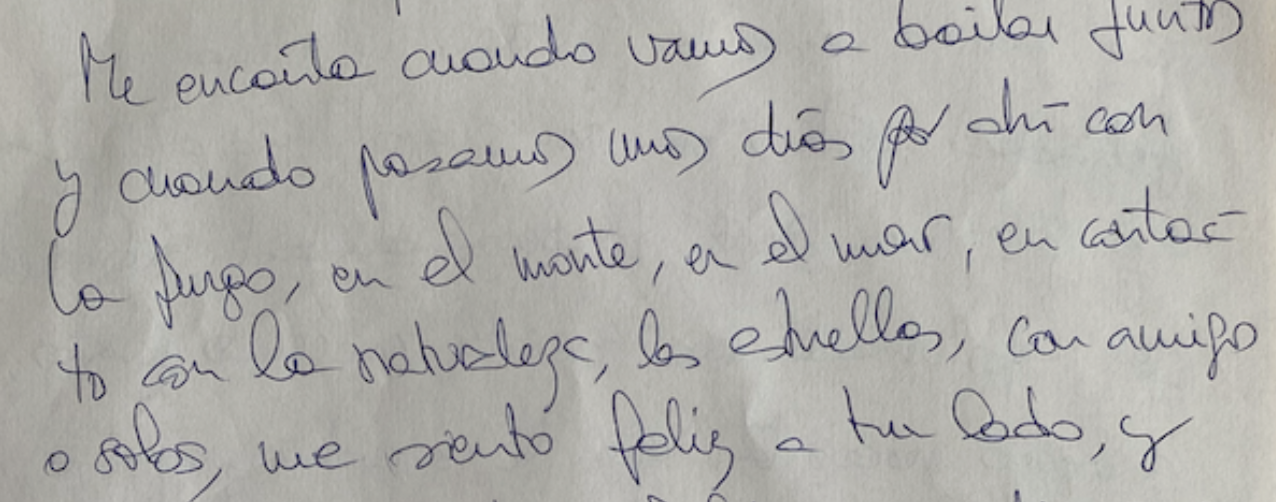 Me encanta cuando vamos a bailar juntos
y cuando pasamos unos días por ahí con
la furgo, en el monte, en el mar, en contac-
to con la naturaleza, las estrellas, con amigo
o solos, me siento feliz a tu lado, y